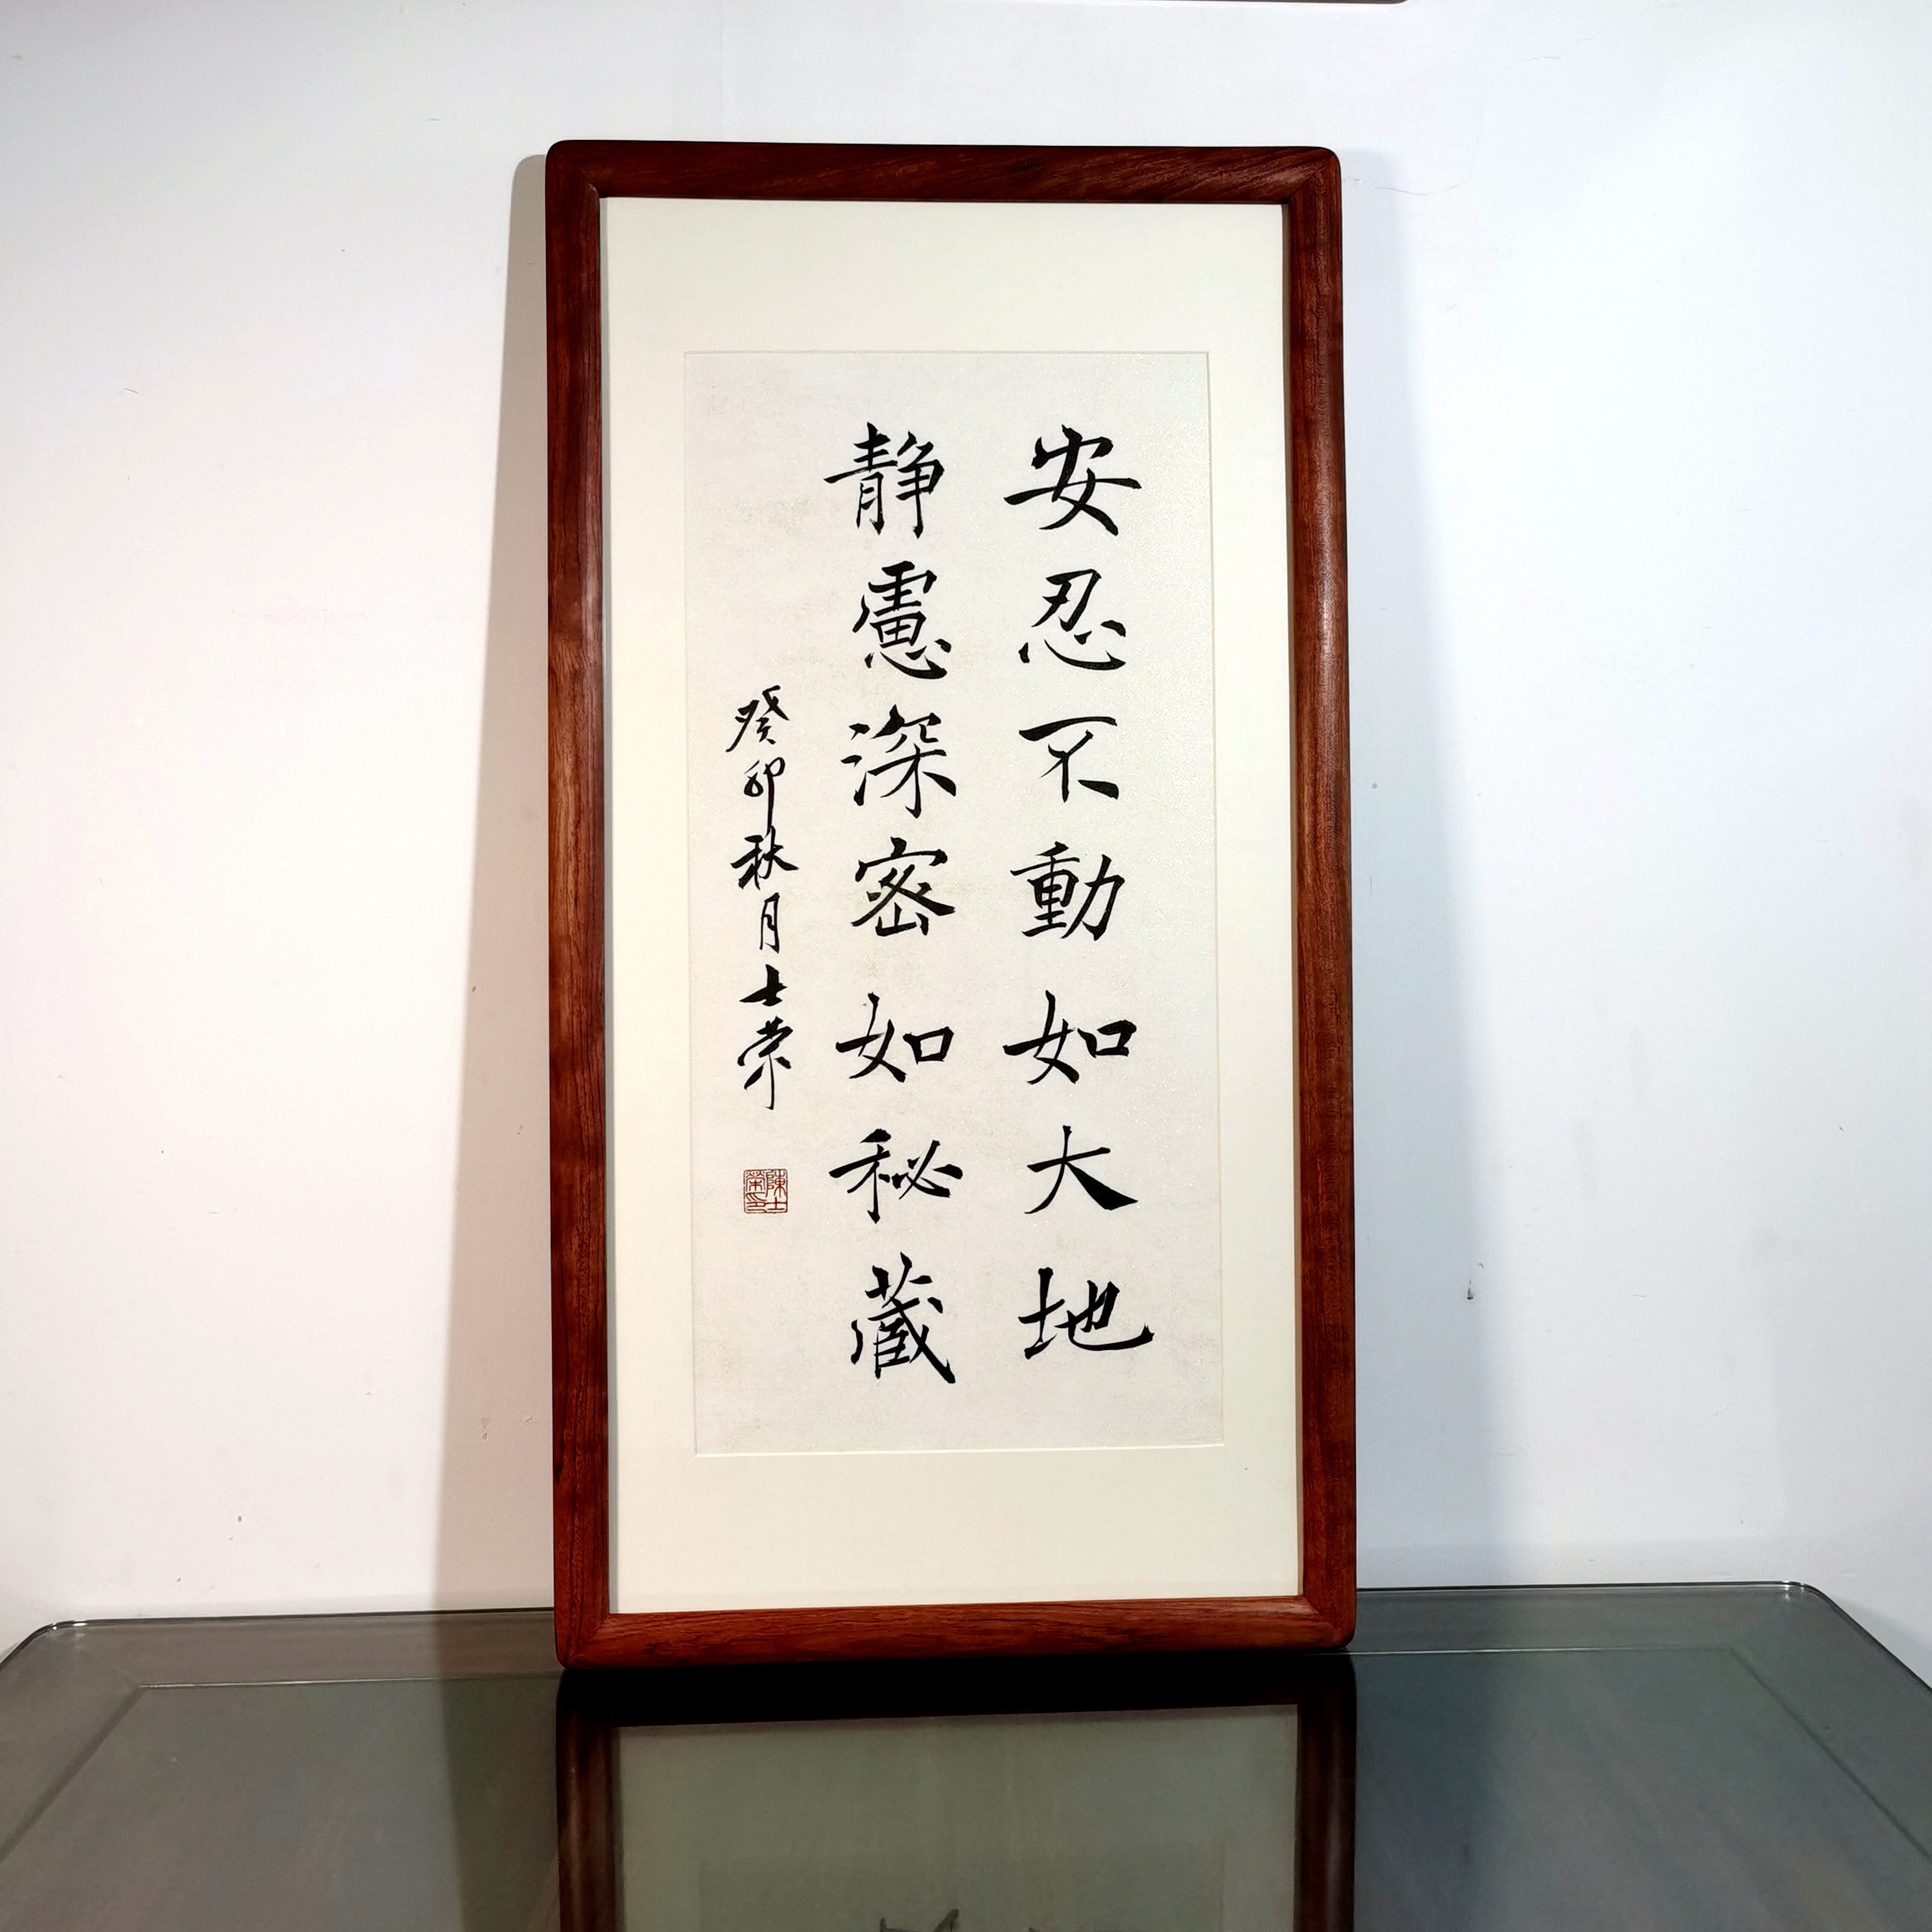 安忍不動如大地
静慮深密如秘蔵
癸卯秋月士荣
陳士榮印